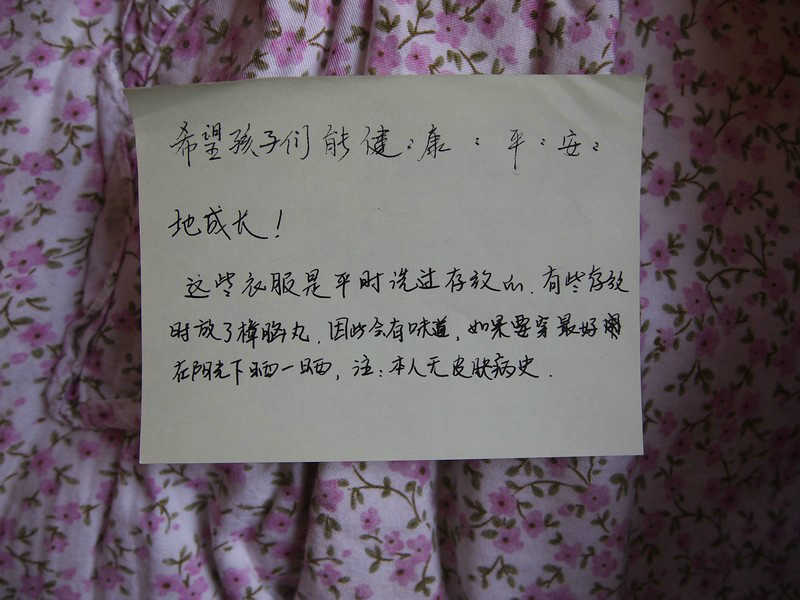 希望孩子们能健健康康平平安安
地成长！
这些衣服是平时洗过存放的.有些存放
时放了樟脑丸.因此会有味道,如果要穿最好
在阳光下晒一晒,注:本人无皮肤病史.